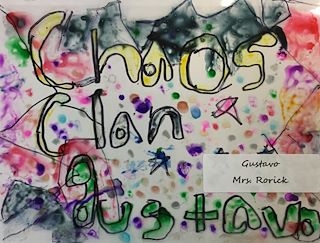 Chaos
Clan
Gustavo
Gustavo
Mrs. Rorick